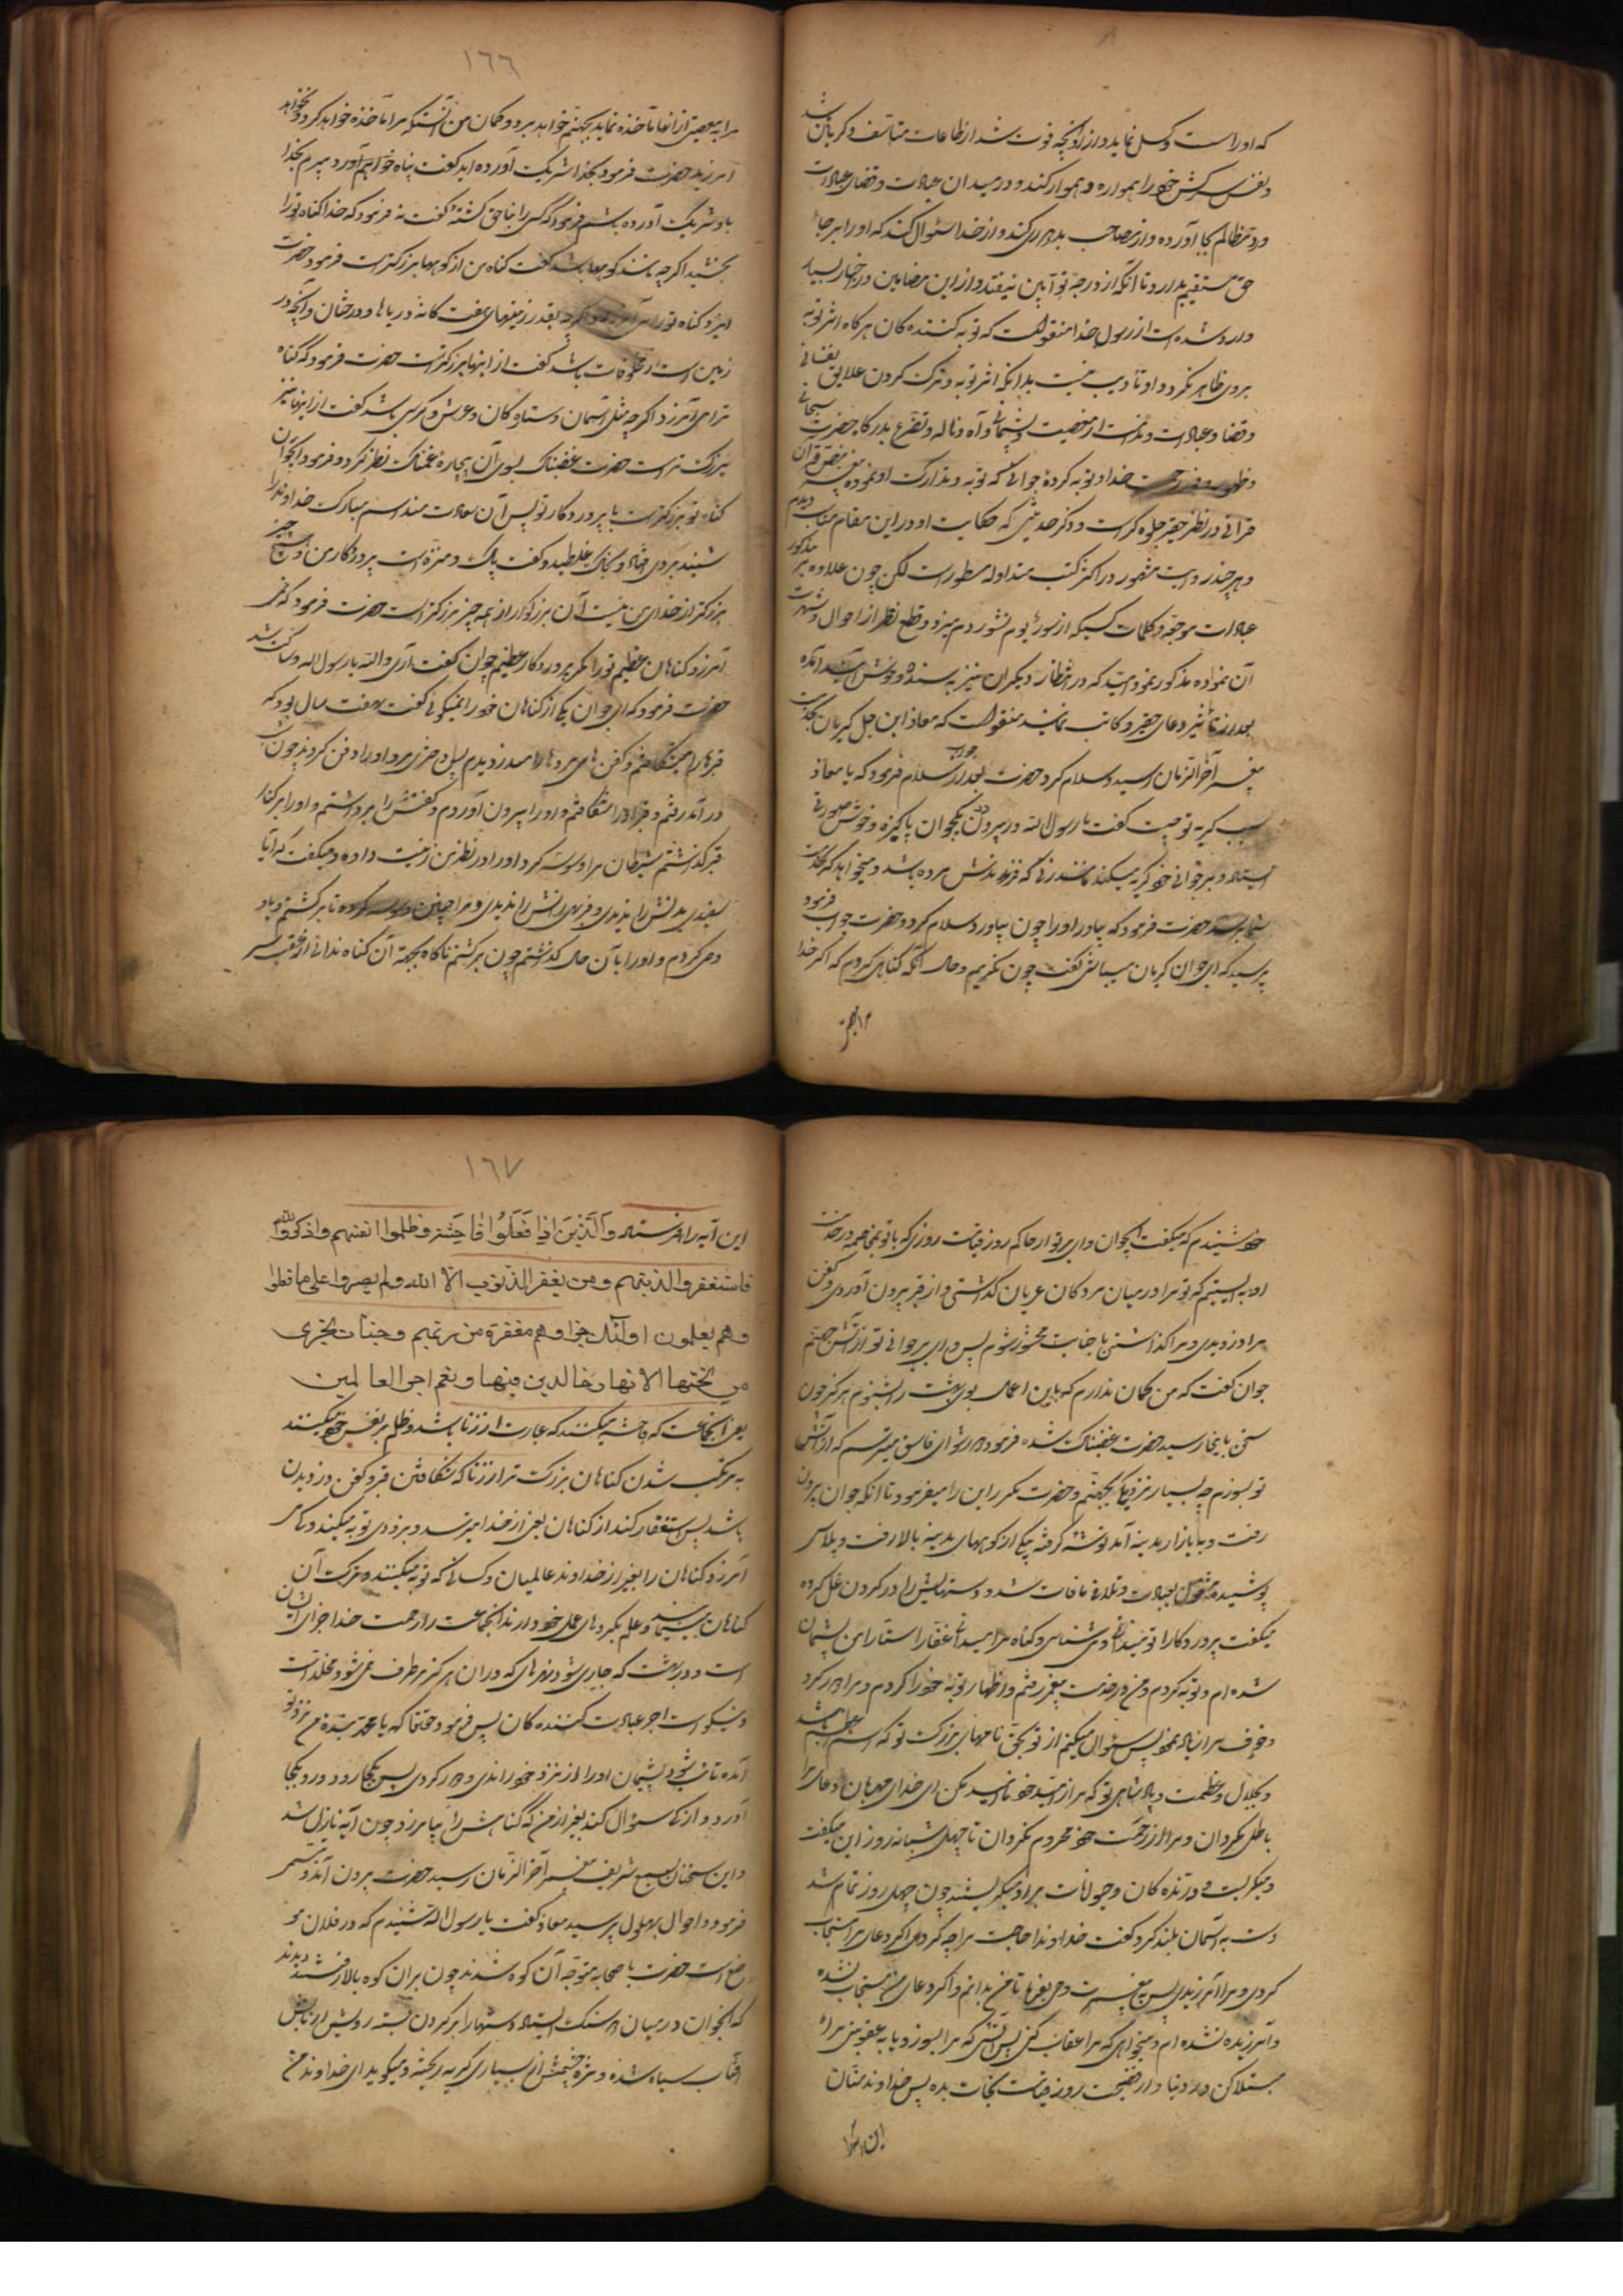 که او راست و کسل نماید و از آنچه فوت شد از طاعات متاسف و کریان باشد
و نفس سرکش خود را همواره هموار کند و در میدان عبادت و قضای عبادات
ورد مظالم بجا آورده و از مصاحب بد دوری کند و از خدا سئوال کند که او را بر جاده
حق مستقیم بدارد تا آنکه از درجه توابین نیفتد و از این مضامین در اخبار بسیار
وارد شده است از رسول خدا منقولست که توبه کننده کان هرکاه اثر توبه
بروی ظاهر نکردد او تائب نیست بدانکه اثر توبه و ترک کردن علایق نفسانی
و قضا و عبادات و ندامت از معصیت و پشیمانی و آه و ناله و تضرع بدرکاه حضرت سبحانی
و ظهور رحمت خداوند توبه کردهٔ جوانی که توبه و تدارک او نموده نص قرآن
قرآنی در نظر حقیر جلوه کر است و ذکر حدیثی که حکایت او در این مقام مناسب دیدم
و هر چند روایت مشهور در اکثر کتب متداوله مسطور است لکن چون علاوه بر مذکور
عبارات موجه و کلمات کسیکه از سورهٔ یوم نشور دم میزد و قطع نظر از احوال و شهرت
آن نموده مذکور نمود امید که در انظار دیکران نیز پسنده و خوش آیند آمده
بعد از تاثیر دعای حقیر و کاتب نمایند منقولست که معاذ ابن جبل کریان بخدمت
پیغمبر آخر الزمان رسید و سلام کرد حضرت بعد از جواب سلام فرمود که یا معاذ
سبب کریه تو چیست کفت یا رسول الله در بیرون در یکجوان پاکیزه و خوش صورتی
ایستاده و بر جوانی خود کریه میکند مانند زنی که فرزندش مرده باشد و میخواهد که بخدمت
شما برسد حضرت فرمود که بیاور او را چون بیاورد سلام کرد و حضرت جواب فرمود
پرسید که ای جوان کریان میباشی کفت چون نکریم و حال آنکه کناهی کردم که اکر خدا
مرا ببعضی از آنها مآخذه نماید بجهنم خواهد برد و کمان من آنستکه مرا مآخذه خواهد کرد و نخواهد
آمرزید حضرت فرمود بخدا شریک آورده اید کفت پناه خواهم آورد میبرم بخدا
با و شریک آورده باشم فرمود که کسی را بناحق کشتهٔ کفت نه فرمود که خدا کناه تو را
بخشید اکرچه مانند کوهها باشد کفت کناه من از کوهها بزرکتر است فرمود حضرت
ایزد کناه تو را می آمرزد اکرچه بقدر زمینهای هفت کانه و دریاها و درختان و آنچه در
زمین است از مخلوقات باشد کفت از اینها بزرکتر است حضرت فرمود که کناه
ترا می آمرزد اکرچه مثل آسمان و ستاره کان و عرش و کرسی باشد کفت از اینها نیز
بزرک تر است حضرت غضبناک بسوی آن بیچارهٔ غمناک نظر کرد و فرمود ایجوان
کناه تو بزرکتر است یا پروردکار تو پس آن سعادت مند اسم مبارک خداوند را
شنیده بروی افتاد و بخاک غلطید و کفت پاک و منزه است پروردکار من و هیچ چیز
بزرکتر از خدای من نیست آن بزرکوار از همه چیز بزرکتر است حضرت فرمود که کی
آمرزد کناهان عظیم تو را مکر پروردکار عظیم جوان کفت آری والله یا رسول الله و ساکت شد
حضرت فرمود که ای جوان یکی از کناهان خود را نمیکوئی کفت هفت سال بود که
قبرها را میشکافتم و کفن های مردها را میدزدیدم پس دختری مرد او را دفن کردند چون شب
در آمد رفتم و قبر او را شکافتم و او را بیرون آوردم و کفنش را برداشتم و او را بر کنار
قبر کذشتم شیطان مرا وسوسه کرد او را در نظر من زینت داده و میکفت که آیا
سفیدی بدنش را ندیدی و فربهی رانش را ندیدی و مرا چنین وسوسه کرد تا برکشتم و با او
وطی کردم و او را بآن حال کذشتم چون برکشتم ناکاه بجهة آن کناه ندائی از عقب سر
١٦٦
خود شنیدم که میکفت ایجوان وای بر تو از حاکم روز قیامت روزی که با تو بمخاصمه در خدمت
او به ایستیم که تو مرا در میان مردکان عریان کذاشتی و از قبر بیرون آوردی و کفن
مرا دزدیدی و مرا کذاشتی با جنابت محشور شوم پس وای بر جوانی تو از آتش جهنم
جوان کفت که من کمان ندارم که باین اعمال بوی بهشت را بشنوم هرکز چون
سخن باینجا رسید حضرت غضبناک شده فرمود دور شو ای فاسق میترسم که از آتش
تو بسوزم چه بسیار نزدیکی بجهنم و حضرت مکرر این را میفرمود تا آنکه جوان بیرون
رفت و ببازار مدینه آمد توشه کرفته بیکی از کوههای مدینه بالا رفت و پلاسی
پوشیده مشغول بعبادت و تلافی مافات شد و دستهایش را در کردن غل کرده
میکفت پروردکارا تو میدانی و می شناسی و کناه مرا میدانی غفارا ستارا من پشیمان
شده ام و توبه کردم و من در خدمت پیغمبر رفتم و اظهار توبه خود را کردم و مرا دور کرد
و خوف مرا زیاد نمود پس سئوال میکنم از تو بحق نامهای بزرک تو که اسم اعظم باشد
و بجلال و عظمت و پادشاهی تو که مرا از امید خود ناامید مکن ای خدای مهربان و دعای مرا
باطل مکردان و مرا از رحمت خود محروم مکردان تا چهل شبانه روز این میکفت
و میکریست و درنده کان و حیوانات بر او میکریستند چون چهل روز تمام شد
دست به آسمان بلند کرد و کفت خداوندا حاجت مرا چه کردی اکر دعای مرا مستجاب
کردی و مرا آمرزیدی پس به پیغمبرت وحی بفرما تا من بدانم و اکر دعای من مستجاب نشده
و آمرزیده نشده ام و میخواهی که مرا عقاب کنی پس آتشی که مرا بسوزد یا به عقوبتی مرا
مبتلا کن در دنیا و از فضیحت روز قیامت نجات بده پس خداوند منان
١٦٧
این آیه را فرستاد وَالَّذینَ اِذا فَعَلُوا فاحِشَة وظلموا انفسهم واذکروالله
فاستغفروا لذنبهم ومن یغفر الذنوب الا الله ولم یصروا علی ما فعلوا
وهم یعلمون اولئک جزاوهم مغفرة من ربهم وجنات تجری
من تحتها الانهار خالدین فیها ونعم اجر العالمین
یعنی آنجماعت که فاحشه میکنند که عبارت از زنا باشد و ظلم بر نفس خود میکنند
به مرتکب شدن کناهان بزرک تر از زنا که شکافتن قبر و کفن دزدیدن
باشد پس استغفار کند از کناهان یعنی از خدا میترسد و بزودی توبه میکند و که می
آمرزد کناهان را بغیر از خداوند عالمیان و کسانی که توبه میکنند و ترک آن
کناهان مینمایند و علم بکردهای خود دارند آنجماعت را از رحمت خدا جزای ایشان
است و در بهشت که جاری شود نهرهای که در آن هرکز برطرف نمی شود و مخلد است
و نیکو است اجر عبادت کننده کان پس فرمود حقتعا که یا محمد بندهٔ من نزد تو
آمده تائب شد و پشیمان او را از نزد خود راندی و دور کردی پس بکجا رود و رو بکجا
آورد و از که سئوال کند بغیر از من که کناهش را بیامرزد چون آیه نازل شد
و این سخنان بسمع شریف پیغمبر آخر الزمان رسید حضرت بیرون آمد و تبسم
فرمود و احوال بهلول پرسید معاذ کفت یا رسول الله شنیدم که در فلان مو
ضع است حضرت با صحابه متوجه آن کوه شدند چون بر آن کوه بالا رفتند دیدند
که آنجوان در میان دو سنک ایستاده دستها را بر کردن بسته رویش از تابش
آفتاب سیاه شده و مژه چشمش از بسیاری کریه ریخته و میکوید ای خداوند من